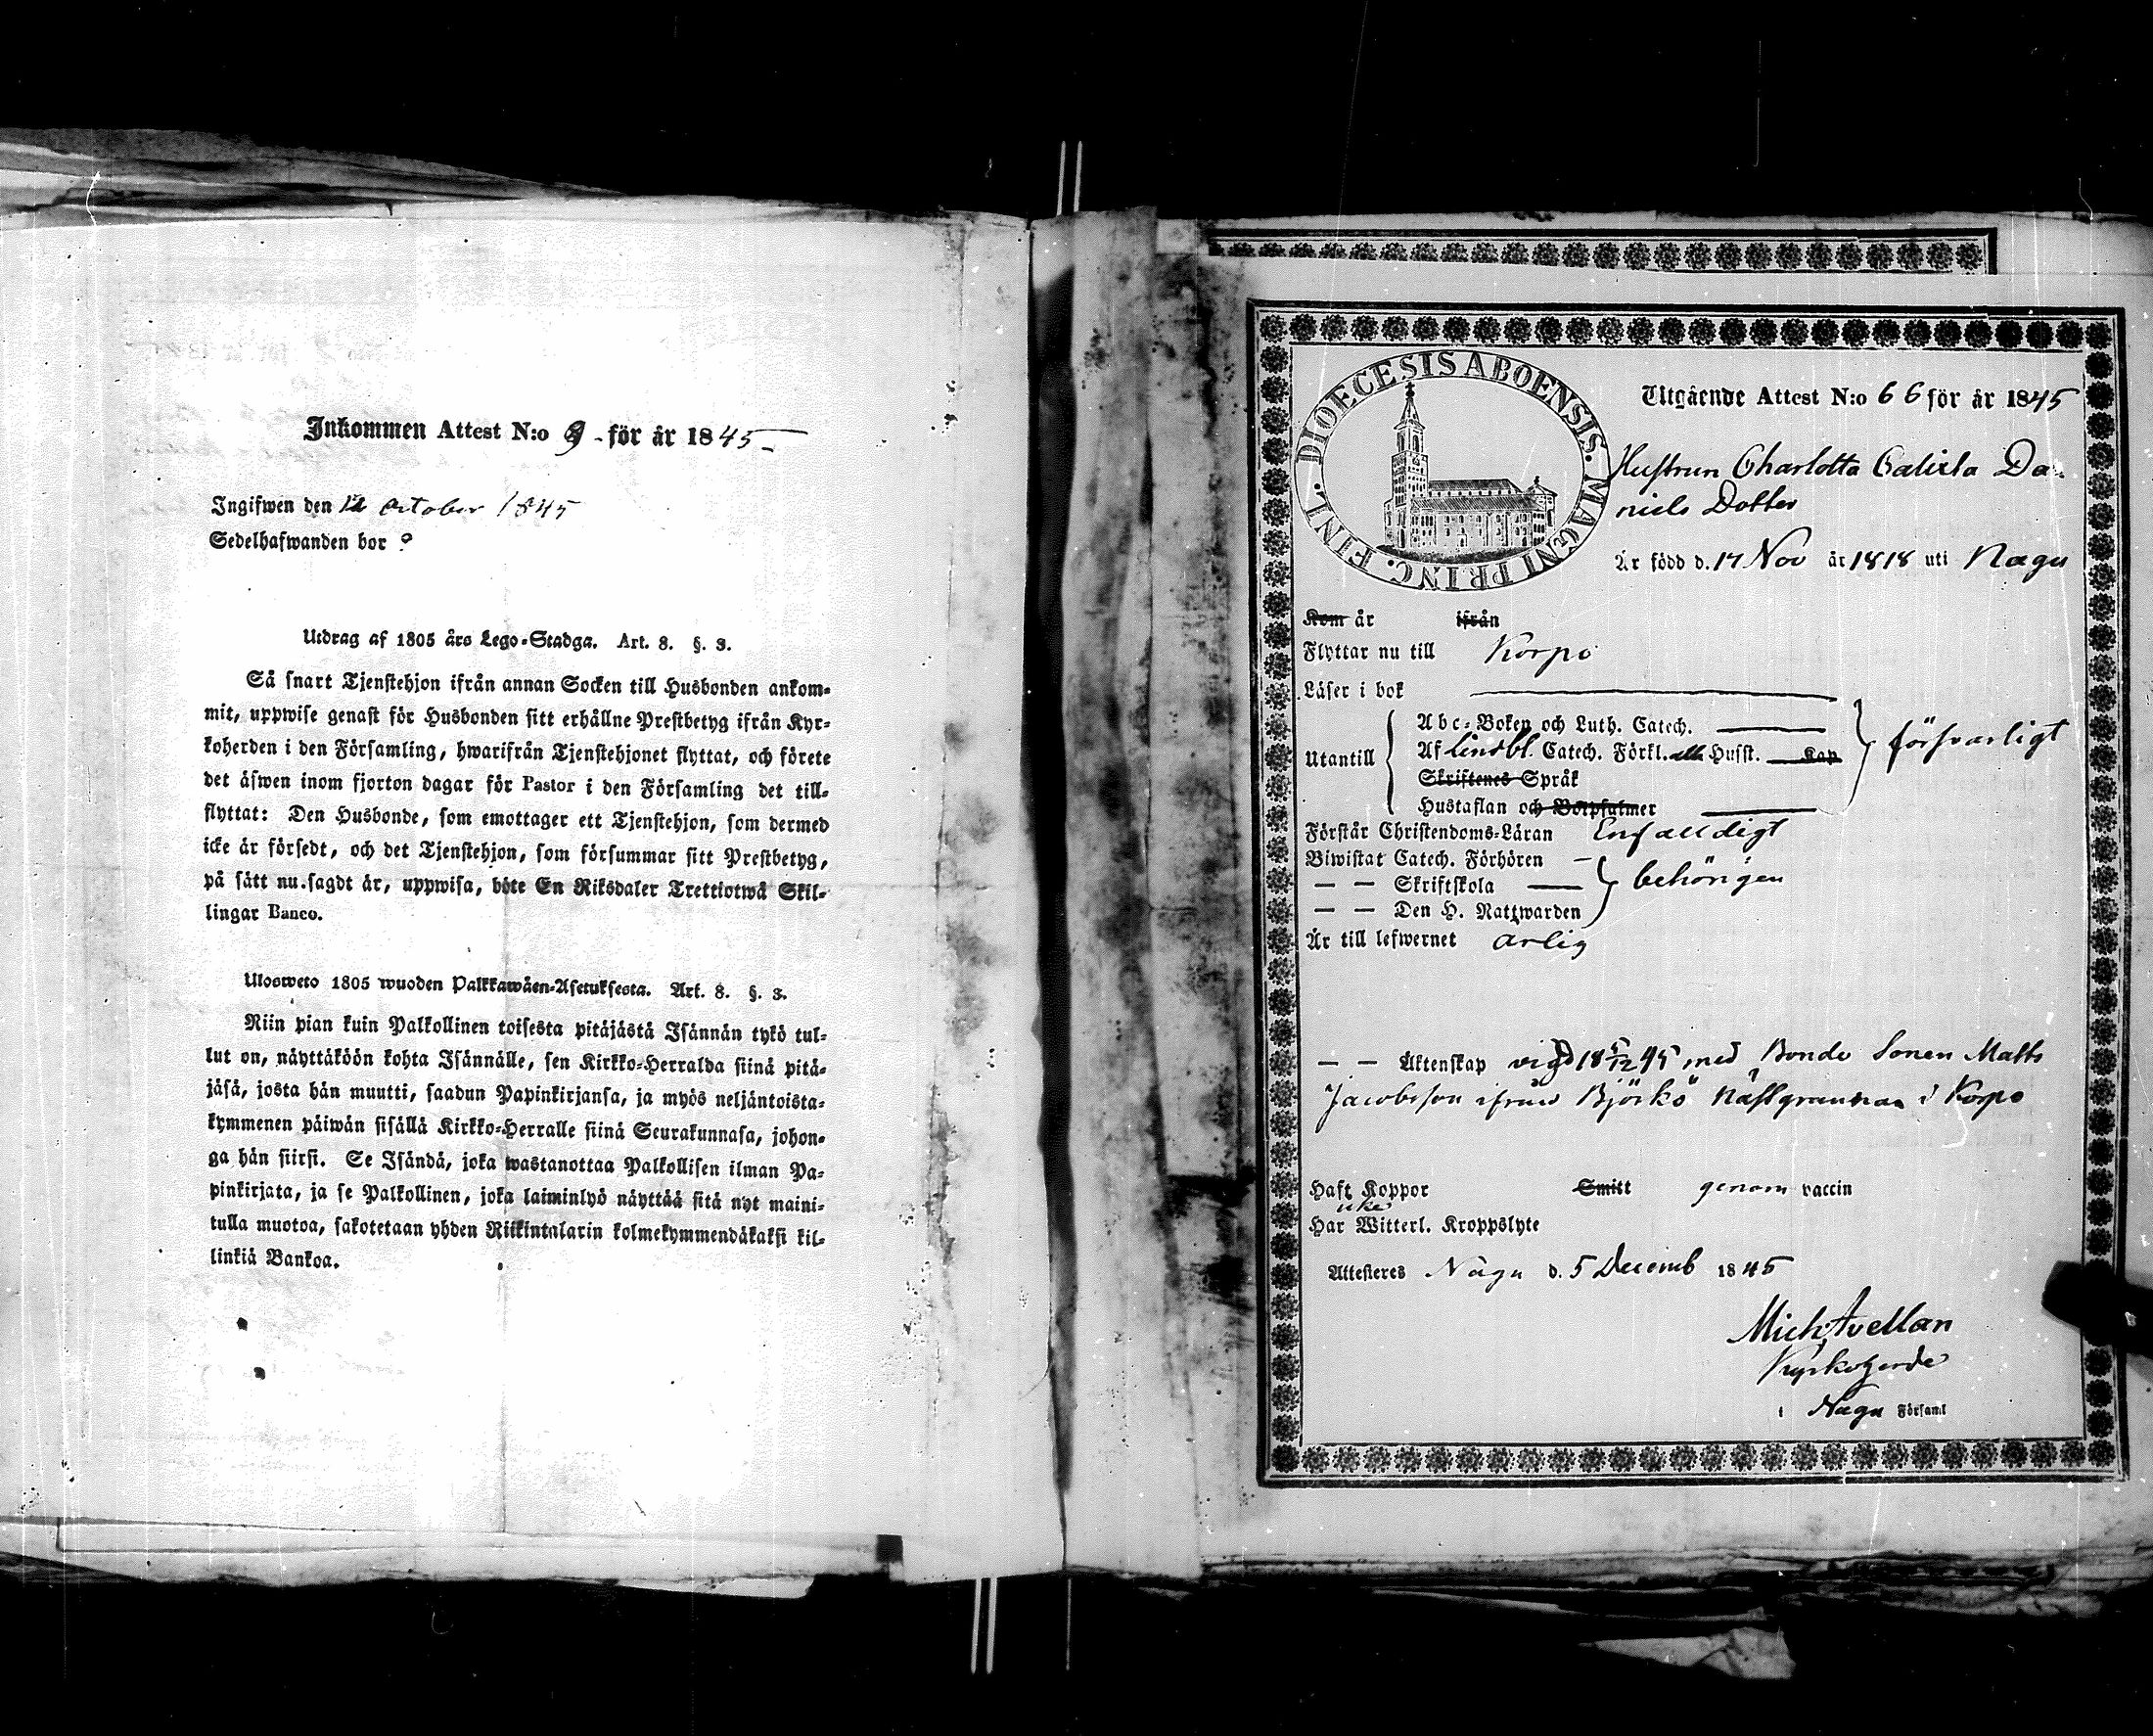 Inkommen Attest N:o 9 för år 1845
Ingifwen den 12 october 1845
Sedelhafwanden bor ?
Utdrag af 1805 års Lego-Stadga. Art. 8. §. 3.
Så snart Tjenstehjon ifrån annan Socken till Husbonden ankom-
mit, uppwise genast för Husbonden sitt erhållne Prestbetyg ifrån Kyr-
koherden i den Församling, hwarifrån Tjenstehjonet flyttat, och förete
det äfwen inom fjorton dagar för Pastor i den Församling det till-
flyttat: Den Husbonde, som emottager ett Tjenstehjon, som dermed
icke är försedt, och det Tjenstehjon, som försummar sitt Prestbetyg,
på sätt nu sagdt är, uppwisa, böte En Riksdaler Trettiotwå Skil-
lingar Banco.
Ulosweto 1805 wuoden Palkkawäen-Asetuksesta. Art. 8. §. 3.
Niin pian kuin Palkollinen toisesta pitäjästä Isännän tykö tul-
lut on, näyttäköön kohta Isännälle, sen Kirkko-Herralda siinä pitä-
jäsä, josta hän muutti, saadun Papinkirjansa, ja myös neljäntoista-
kymmenen päiwän sisällä Kirkko-Herralle siinä Seurakunnasa, johon-
ga hän siirsi. Se Isändä, joka wastanottaa Palkollisen ilman Pa-
pinkirjata, ja se Palkollinen, joka laiminlyö näyttää sitä nyt maini-
tulla muotoa, sakotetaan yhden Riikintalarin kolmekymmendäkaksi kil-
linkiä Bankoa.
DIOECESIS ABOENSIS. MAGNI PRINC. FINL.
Utgående Attest N:o 66 för år 1845
Hustrun Charlotta Calixta Da-
niels Dotter
Är född d. 17 Nov år 1818 uti Nagu
Kom år ifrån
Flyttar nu till Korpo
Läser i bok
Utantill
Abc-Boken och Luth. Catech.
Af Lindbl. Catech. Förkl. alla Husst. Kap
Skriftenes Språk
Hustaflan och Botpsalmer
försvarligt
Förstår Christendoms-Läran Enfalldigt
Biwistat Catech. Förhören
— — Skriftskola
— — Den H. Nattwarden
behörigen
Är till lefwernet ärlig
— — Äktenskap vigd 18 5/12 45 med Bonde Sonen Matts
Jacobsson ifrån Björkö Näst grannan i Korpo
Haft Koppor Smitt genom vaccin
icke
Har Witterl. Kroppslyte
Attesteres Nagu d. 5 Decemb 1845
Mich Avellan
Kyrkoherde
i Nagu Församl